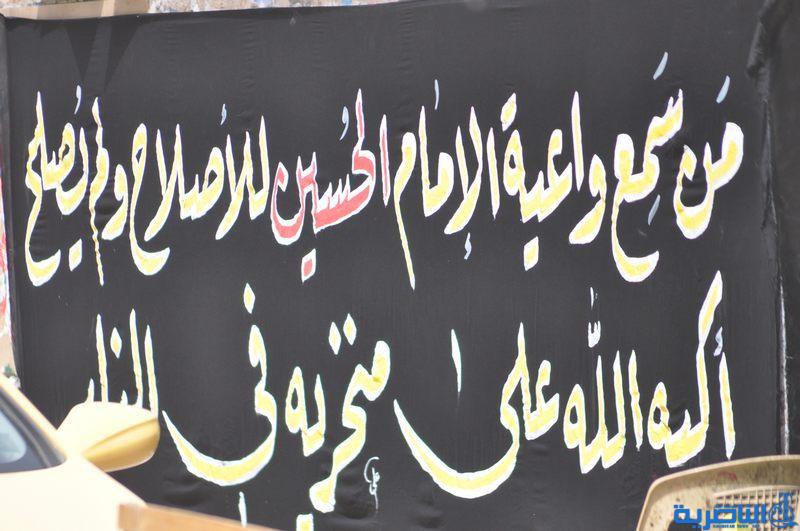 من سمع واعية الإمام الحُسين للأصلاح ولم يُصلح
أكبه الله على منخريه في النار
الناصرية